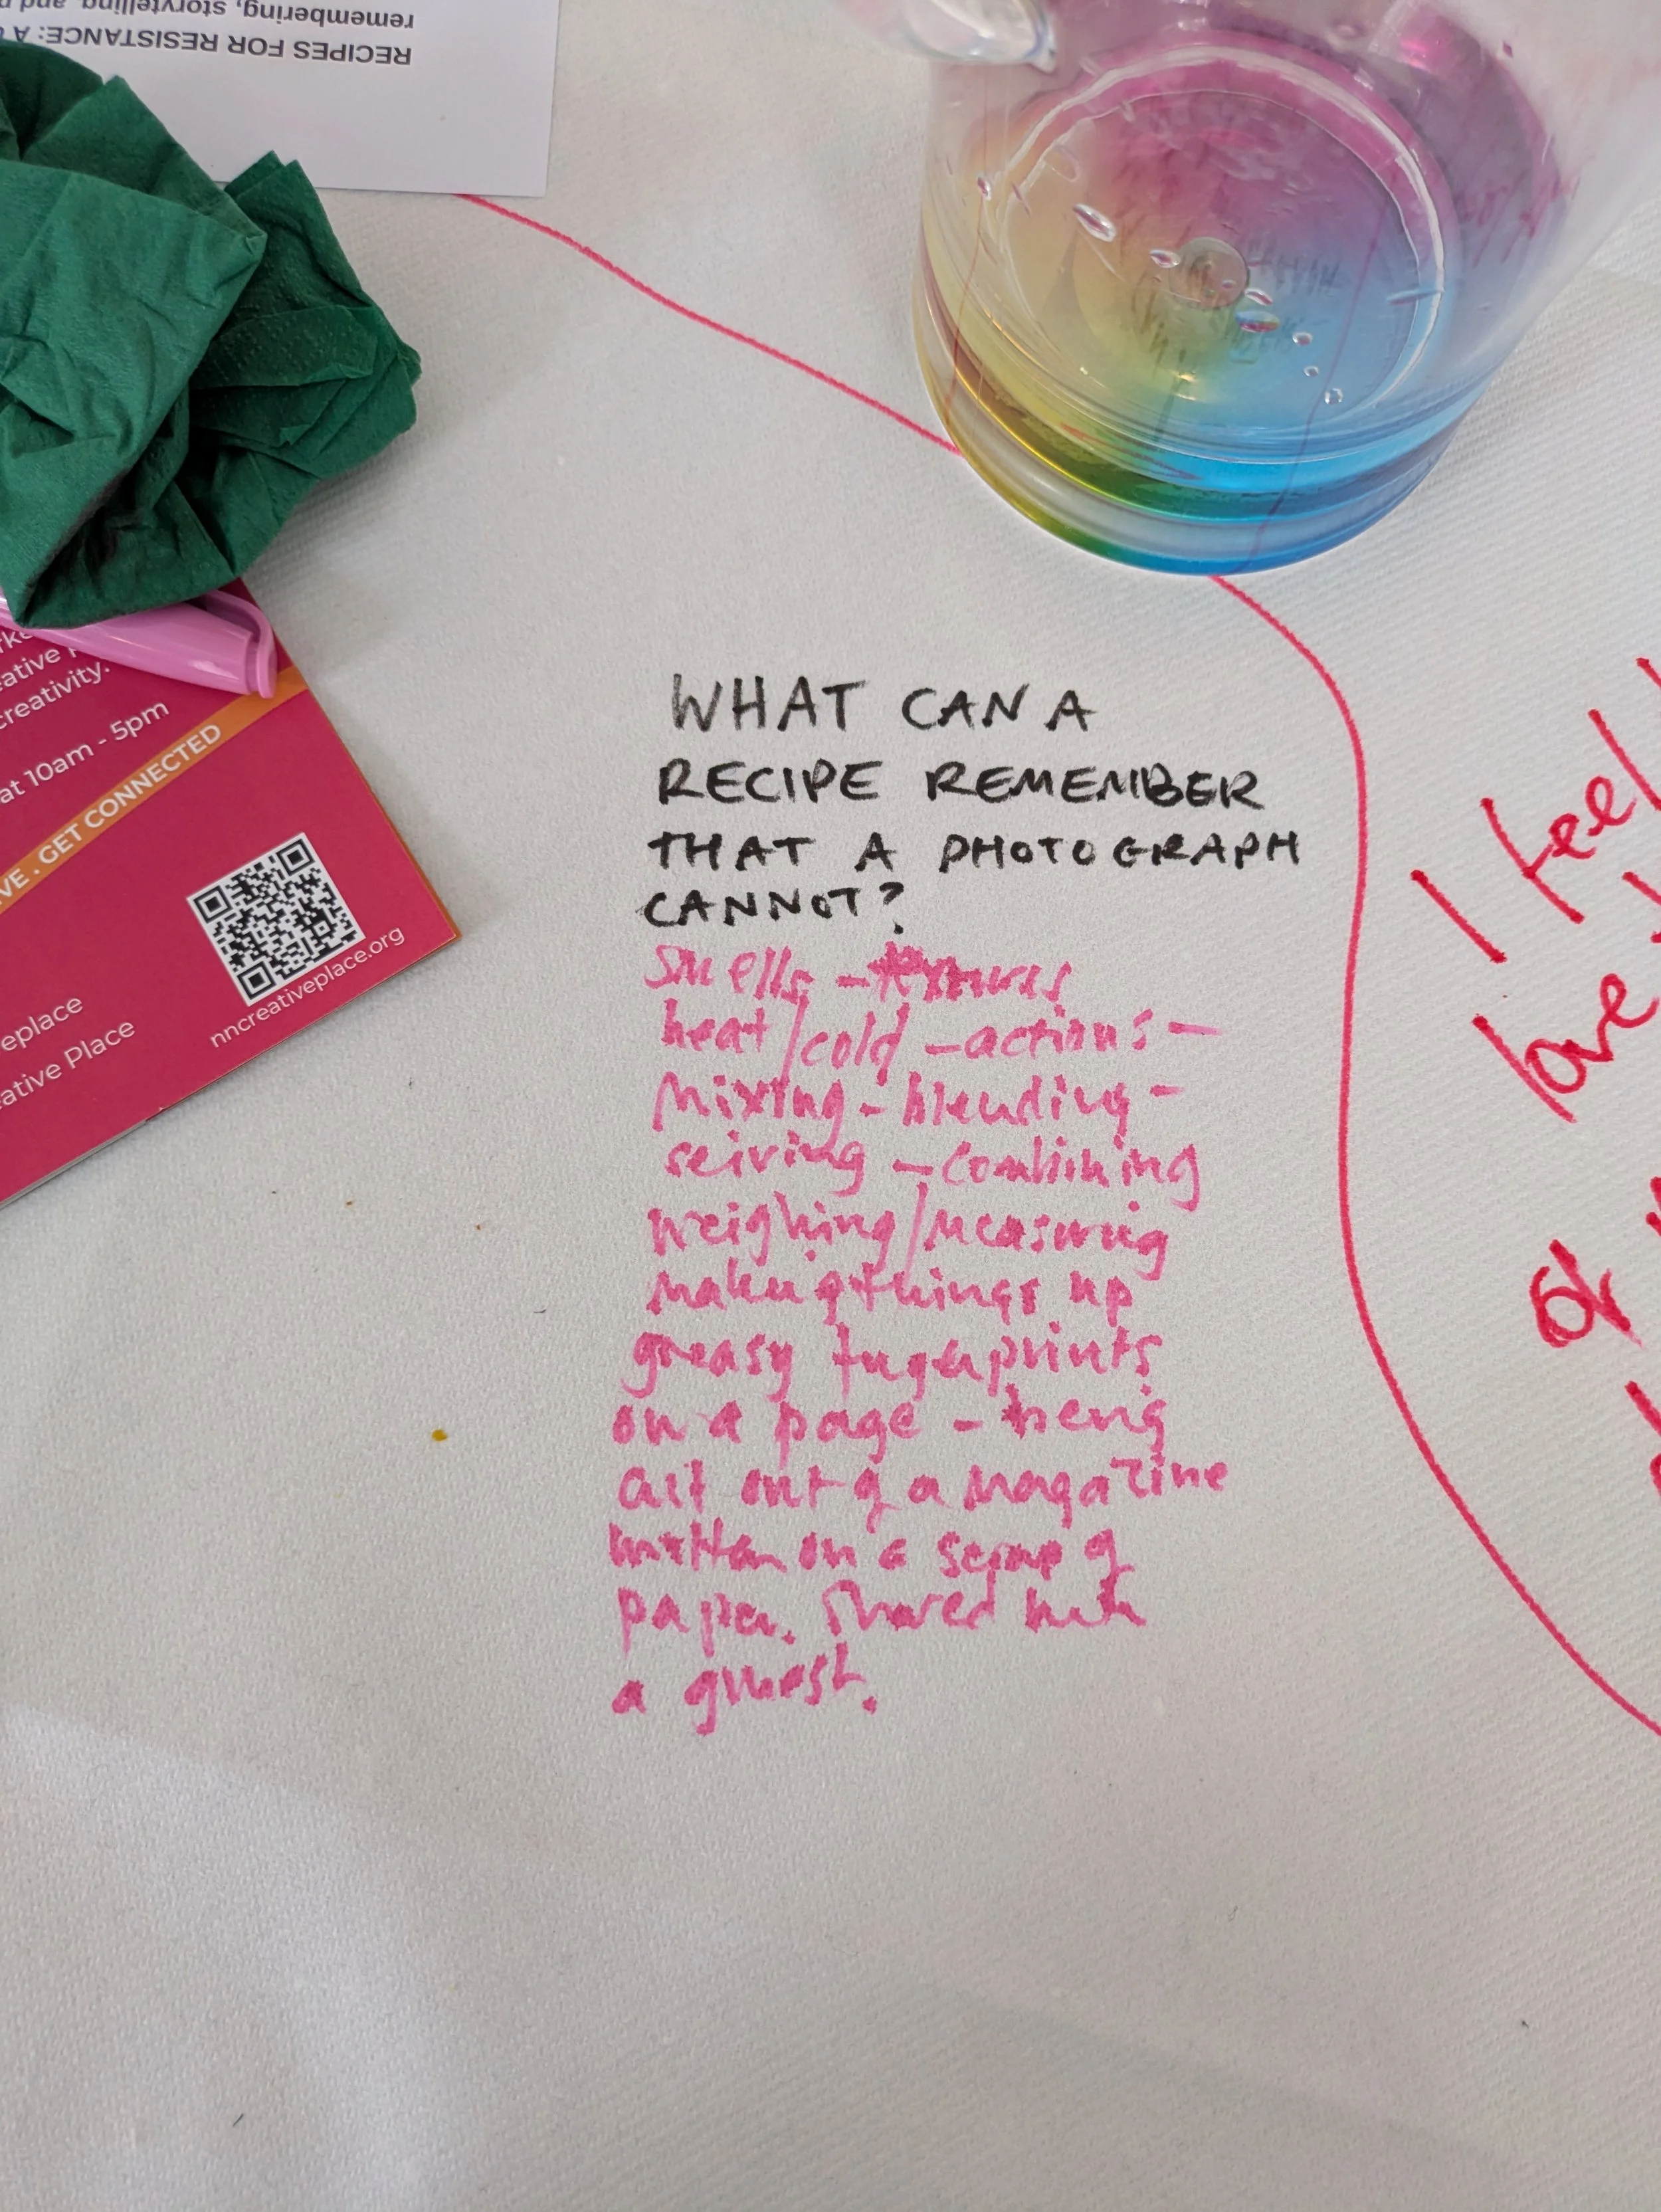 RECIPES FOR RESISTANCE: A
remembering, storytelling, and
creativity.
at 10am - 5pm
VE . GET CONNECTED
nncreativeplace.org
eplace
ative Place
WHAT CAN A
RECIPE REMEMBER
THAT A PHOTOGRAPH
CANNOT?
smells - textures
heat/cold - actions -
mixing - blending -
seiving - combining
weighing/measuring
making things up
greasy fingerprints
on a page - being
cut out of a magazine
written on a scrap of
paper. Shared with
a guest.
I feel
love
of